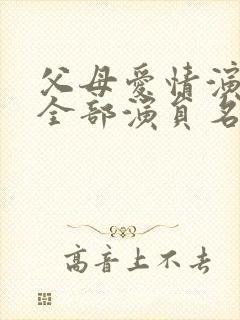 父母爱情演
全部演員名
高音上不去